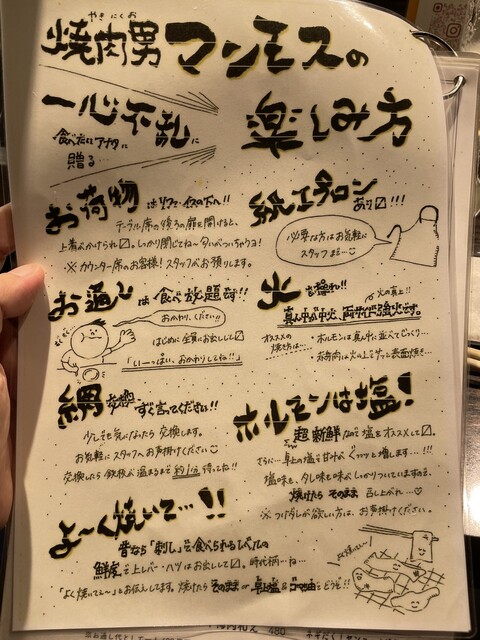 焼肉男マンモスの
やきにくお
一心不乱に
食べたいアナタに
贈る…
楽しみ方
お荷物はソファ・イスの下へ!!
テーブル席の後ろの扉を開けると、
上着もかけられ〼。しっかり閉じてね〜
※カウンター席のお客様!スタッフがお預りします。
紙エプロンあり〼!!!
必要な方はお気軽に
スタッフまで…
お通しは食べ放題です!!
おかわり、ください!!
はじめに全員にお出しして〼
「いーっぱい、おかわりしてね!!」
火を操れ!!
火の真上!!
真ん中が中火、両サイド強火です。
オススメの
焼き方は…
・ホルモンは真ん中に並べてじっくり…
・お肉は火の上でサッと表面焼き…
網交換すぐ言ってください!!
少しでも気になったら交換します。
お気軽にスタッフへお声掛けください
交換したら鉄板が温まるまで約1分待ってね!!
ホルモンは塩!
超新鮮なので塩をオススメして〼。
さらに…卓上の塩で甘みがググッと増します…!!!
塩味も、タレ味も味がしっかりついていますので、
焼けたらそのまま召し上がれ…♡
※つけダレが欲しい方は、お声掛けください。
よ〜く焼いて…!!
昔なら「刺し」で食べられるレベルの
鮮度で上レバー・ハツはお出しして〼。時代柄…ね…
「よく焼いて〜」とお伝えしてます。焼けたらそのままか卓上塩&ゴマ油でどうぞ!!
よく焼いてー!!
480